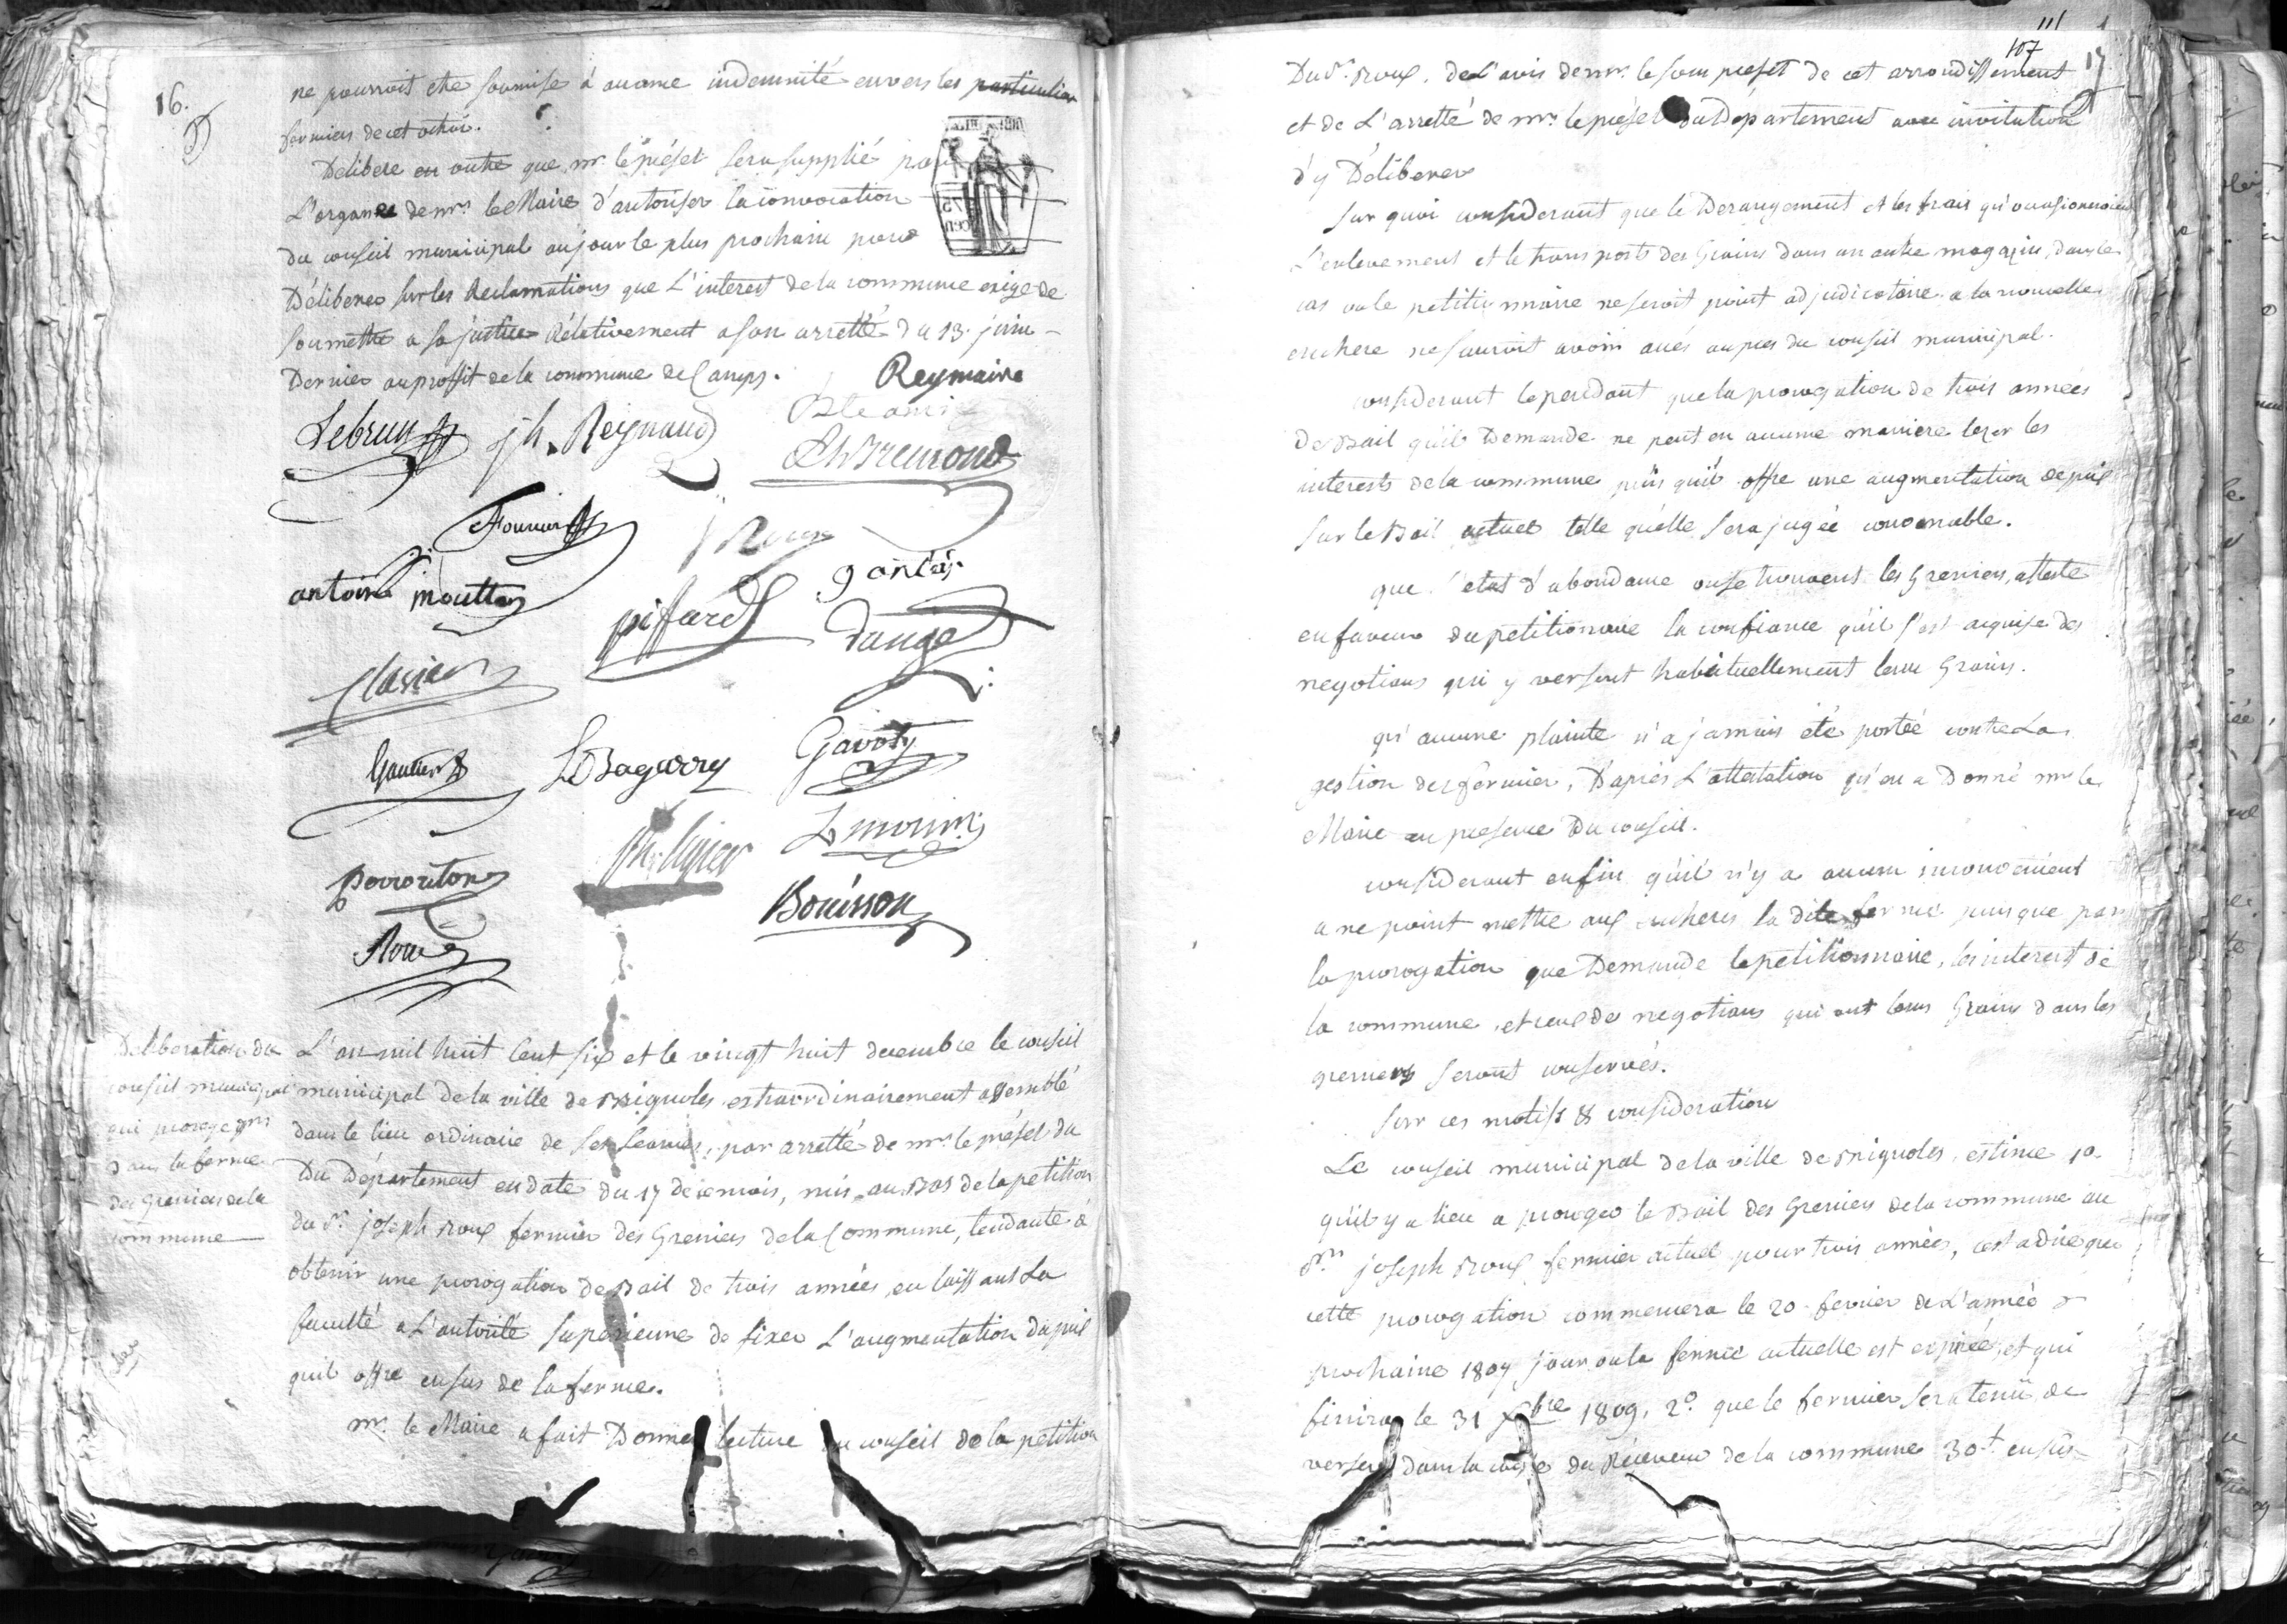 16.
ne pourroit etre soumise à aucune indemnité envers les particuliers
fermiers de cet octroi.
Delibere en outre que mr. le préfet sera supplié par
L'organne de mr. le Maire d'autoriser la convocation
du conseil municipal au jour le plus prochain pour
Déliberer sur les Reclamations que L'interest de la commune exige de
soumettre a sa justice Rélativement a son arretté du 13. juin
Dernier au proffit de la commune de Camps.
Reymaire
Lebrun
jh. Reynaud
Bremond
Fournier
antoine moutton
piffard
gantés
dauge
Clavier
Gautier
LBagarry
Gavoty
Lmorin
Perrouton
Bouisson
Roux
Deliberation du
conseil municipal
qui proroge
dans la ferme
des Greniers de la
commune
L'an mil huit cent six et le vingt huit decembre le conseil
municipal de la ville de Brignoles extraordinairement assemblé
dans le lieu ordinaire de ses seances, par arretté de mr. le préfet du
Du Département en date du 17 de ce mois, mis au Bas de la petition
du Sr. joseph Roux fermier des Greniers de la Commune, tendante à
obtenir une prorogation de Bail de trois années, en laissant La
faculté a L'autorité superieure de fixer L'augmentation du prix
quil offre en sus de la ferme.
mr. le Maire a fait Donner lecture au conseil de la petition
111
107
17
Du Sr. Roux, de L'avis de mr. le sous prefet de cet arrondissement
et de L'arretté de mr. le préfet du Département avec invitation
d'y Déliberer
Sur quoi considerant que le Derangement et les frais qu'occasioneroient
L'enlevement et le transports des Grains dans un autre magazin, dans le
cas ou le petitionnaire ne seroit point adjudicataire a la nouvelle
enchere ne sauroit avoir accés aupres du conseil municipal.
considerant cependant que la prorogation de trois années
de Bail qu'il Demande ne peut en aucune maniere lezer les
interests de la commune puis qu'il offre une augmentation de prix
sur le Bail actuel telle qu'elle sera jugée convenable.
que l'etat d'abondance ou se trouvent les Greniers, atteste
en faveur du petitionnaire la confiance qu'il s'est acquise des
negotians qui y versent habituellement leur Grains.
qu'aucune plainte n'a jamais été portée contre La
gestion de ce fermier, D'après L'attestation qu'en a Donné mr. le
Maire en presence Du conseil.
considerant enfin qu'il n'y a aucun inconvenient
a ne point mettre aux encheres la dite ferme puisque par
la prorogation que Demande le petitionnaire, les interest de
la commune, et ceux de negotians qui ont leurs Grains dans les
greniers seront conservés.
sur ces motifs & consideration
Le conseil municipal de la ville de Brignoles, estime 1o.
qu'il y a lieu a proroger le Bail des Greniers de la commune au
Sr. joseph Roux fermier actuel pour trois années, cest a dire que
cette prorogation commencera le 20 fevrier de L'année
prochaine 1807 jour ou la ferme actuelle est expirée, et qui
finira le 31 Xbre 1809, 2o. que le fermier sera tenû de
verser dans la caisse du Réceveur de la commune 30 t en sus